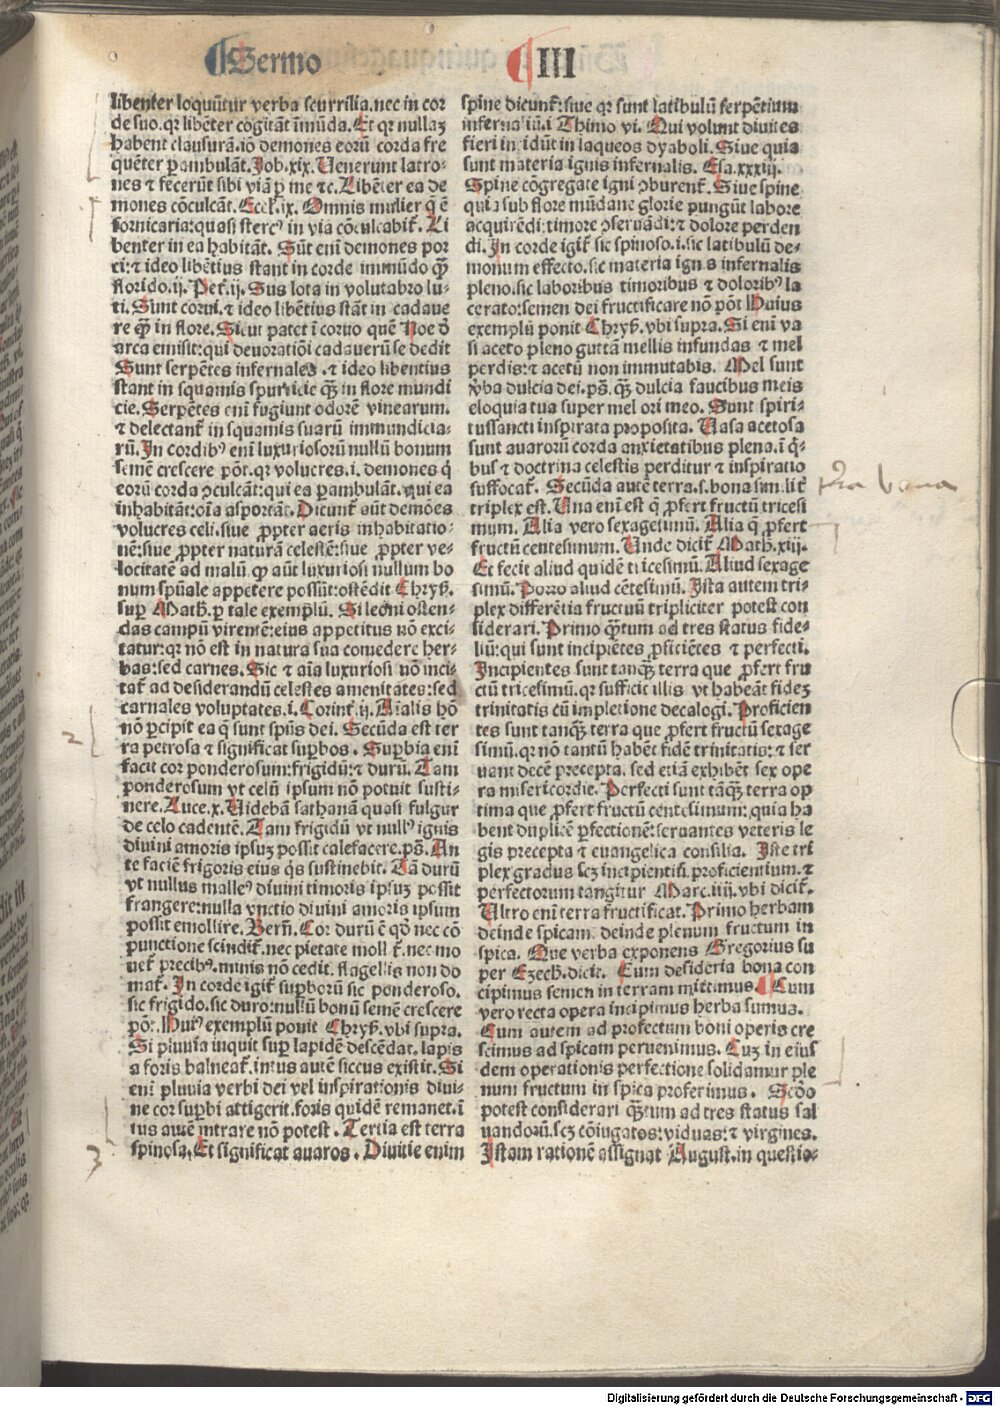 Sermo III
libenter loquūtur verba scurrilia.nec in cor
de suo.qr libēter cogitāt īmūda.Et qr nullaꝫ
habent clausurā.iō demones eorū corda fre
quēter pambulāt.Job.xix.Uenerunt latro⸗
nes ⁊ fecerūt sibi viā p me ⁊c.Libēter ea de
mones cōculcāt.Eccl.ix. Omnis mulier q̄ ē
fornicaria:quasi sterc⁹ in via cōculcabit᷑. Li
benter in ea habitāt. Sūt enī demones por
ci:⁊ ideo libētius stant in corde immūdo qꝫ̄
florido.ij. Pet᷑.ij. Sus lota in volutabro lu⸗
ti. Sunt corui.⁊ ideo libētius stāt in cadaue
re qꝫ̄ in flore.Si.ut patet ī coruo quē Noe ō
arca emisit:qui deuoratiōi cadauerū se dedit
Sunt serpētes infernales .⁊ ideo libentius
stant in squamis spurcicie qꝫ̄ in flore mundi
cie. Serpētes enī fugiunt odorē vinearum.
⁊ delectant᷑ in squamis suarū immundicia⸗
rū.In cordib⁹ enī luxuriosorū nullū bonum
semē crescere pōt.qr volucres.i.demones q̄
eorū corda ɔculcāt:qui ea pambulāt.qui ea
inhabitāt:oīa asportāt. Dicunt᷑ aūt demōes
volucres celi.siue ꝓpter aeris inhabitatio⸗
nē:siue ꝓpter naturā celestē:siue ꝓpter ve⸗
locitatē ad malū. ꝙ aūt luxuriosi nullum bo
num spūale appetere possūt:ostēdit Chryß.
sup Math. p tale exemplū. Si leōni osten⸗
das campū virentē:eius appetitus nō exci⸗
tatur:qr nō est in natura sua comedere her⸗
bas:sed carnes. Sic ⁊ aīa luxuriosi nō inci
tat᷑ ad desiderandū celestes amenitates:sed
carnales voluptates.i. Corint᷑.ij. Aīalis hō
nō pcipit ea q̄ sunt spūs dei. Secūda est ter
ra petrosa ⁊ significat supbos . Supbia enī
facit cor ponderosum:frigidū:⁊ durū. Tam
ponderosum vt celū ipsum nō potuit susti⸗
nere.Luce.x. Uidebā sathanā quasi fulgur
de celo cadentē. Tam frigidū vt null⁹ ignis
diuini amoris ipsuꝫ possit calefacere.ps̄. An
te faciē frigoris eius q̄s sustinebit. Tā durū
vt nullus malle⁹ diuini timoris ipsuꝫ possit
frangere:nulla vnctio diuini amoris ipsum
possit emollire. Bern̄. Cor durū ē qd̄ nec cō
punctione scindit᷑.nec pietate mollit᷑.nec mo
uet᷑ precib⁹.minis nō cedit. flagellis non do
mat᷑. In corde igit᷑ supborū sic ponderoso.
sic frigido.sic duro:nullū bonū semē crescere
pōt. Hui⁹ exemplū ponit Chryß.vbi supra.
Si pluuia inquit sup lapidē descēdat.lapis
a foris balneat᷑.intus autē siccus existit. Si
enī pluuia verbi dei vel inspirationis diui⸗
ne cor supbi attigerit.foris quidē remanet.ī
tus autē intrare nō potest . Tertia est terra
spinosa.Et significat auaros . Diuitie enim
spine dicunt᷑:siue qr sunt latibulū serpētium
infernaliū.i Thimo vi. Qui volunt diuites
fieri incidūt in laqueos dyaboli. Siue quia
sunt materia ignis infernalis. Esa.xxxiij.
Spine cōgregate igni ɔburent᷑. Siue spine
quia sub flore mūdane glorie pungūt labore
acquirēdi:timore ɔseruādi:⁊ dolore perden
di.In corde igit᷑ sic spinoso.i.sic latibulū de⸗
monum effecto.sic materia ignis infernalis
pleno.sic laboribus timoribus ⁊ dolorib⁹ la
cerato:semen dei fructificare nō pōt Huius
exemplū ponit Chryß.vbi supra.Si enī va
si aceto pleno guttā mellis infundas ⁊ mel
perdis:⁊ acetū non immutabis. Mel sunt
v̄ba dulcia dei.ps̄.qꝫ̄ dulcia faucibus meis
eloquia tua super mel ori meo. Sunt spiri⸗
tussancti inspirata proposita. Uasa acetosa
sunt auarorū corda anxietatibus plena.ī q̄⸗
bus ⁊ doctrina celestis perditur ⁊ inspiratio
suffocat᷑. Secūda autē terra.s.bona simlit᷑
triplex est.Una enī est q̄ ꝓfert fructū tricesi
mum. Alia vero sexagesimū. Alia q̄ ꝓfert
fructū centesimum. Unde dicit᷑ Math.xiij.
Et fecit aliud quidē tricesimū. Aliud sexage
simū. Porro aliud cētesimū. Ista autem tri⸗
plex differētia fructuū tripliciter potest con
siderari. Primo qꝫ̄tum ad tres status fide⸗
liū:qui sunt incipiētes ꝓficiētes ⁊ perfecti.
Incipientes sunt tanqꝫ̄ terra que ꝓfert fru
ctū tricesimū.qr sufficit illis vt habeāt fideꝫ
trinitatis cū impletione decalogi. Proficien
tes sunt tanqꝫ̄ terra que ꝓfert fructū sexage
simū.qr nō tantū habēt fidē trinitatis:⁊ ser
uant decē precepta. sed etiā exhibēt sex ope
ra misericordie. Perfecti sunt tāqꝫ̄ terra op
tima que ꝓfert fructū centesimum:quia ha
bent duplicē ꝑfectionē:seruantes veteris le
gis precepta ⁊ euangelica consilia. Iste tri
plex gradus scꝫ incipientiū.proficientium.⁊
perfectorum tangitur Marc.iiij.vbi dicit᷑.
Ultro enī terra fructificat. Primo herbam
deinde spicam. deinde plenum fructum in
spica. Que verba exponens Gregorius su
per Ezech.dicit. Cum desideria bona con
cipimus semen in terram mittimus. ¶ Cum
vero recta opera incipimus herba sumus.
Cum autem ad profectum boni operis cre
scimus ad spicam peruenimus. Cuꝫ in eius
dem operationis perfectione solidamur ple
num fructum in spica proferimus . Scd̄o
potest considerari qꝫ̄tum ad tres status sal
uandorū.scꝫ cōiugatos:viduas:⁊ virgines.
Istam rationē assignat August.in questio⸗
bona
2
3
Digitalisierung gefördert durch die Deutsche Forschungsgemeinschaft - DFG